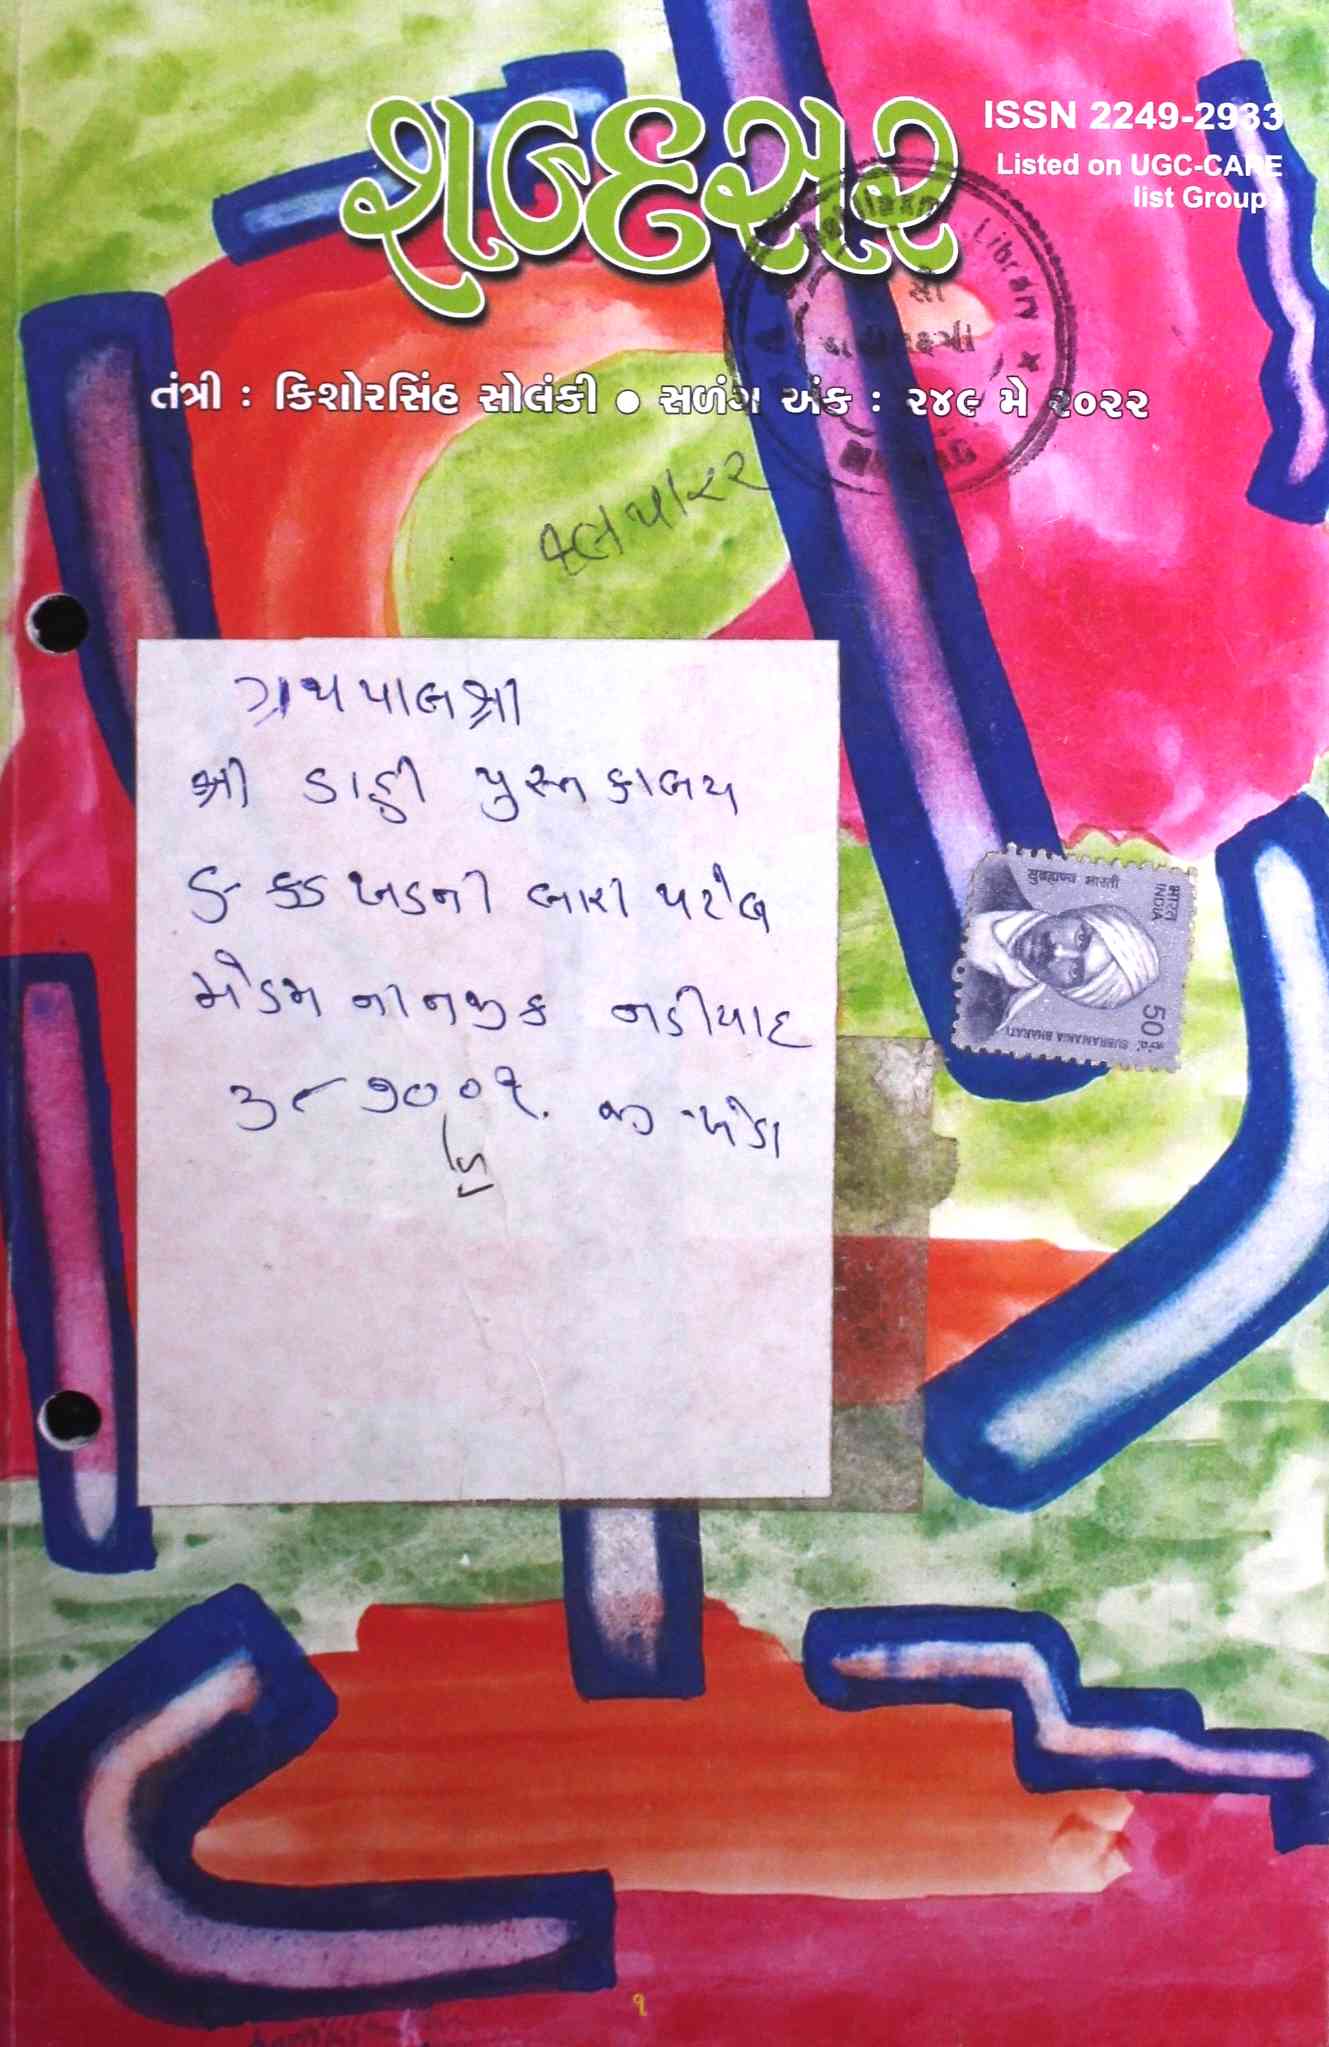 શબ્દસર
ISSN 2249-2933
Listed on UGC-CARE
list Group
Library
તંત્રી : કિશોરસિંહ સોલંકી ● સળંગ અંક : ૨૪૯ મે ૨૦૨૨
ગ્રથપાલશ્રી
શ્રી ડાહી પુસ્તકાલય
કાકડખડની બારી પટેલ
મેડમ ની નજીક નડીયાદ
૩૮૭૦૦૧. જી ખેડા
सुब्रह्मण्य भारती
भारत
INDIA
50
SUBRAMANIA BHARATI
૧